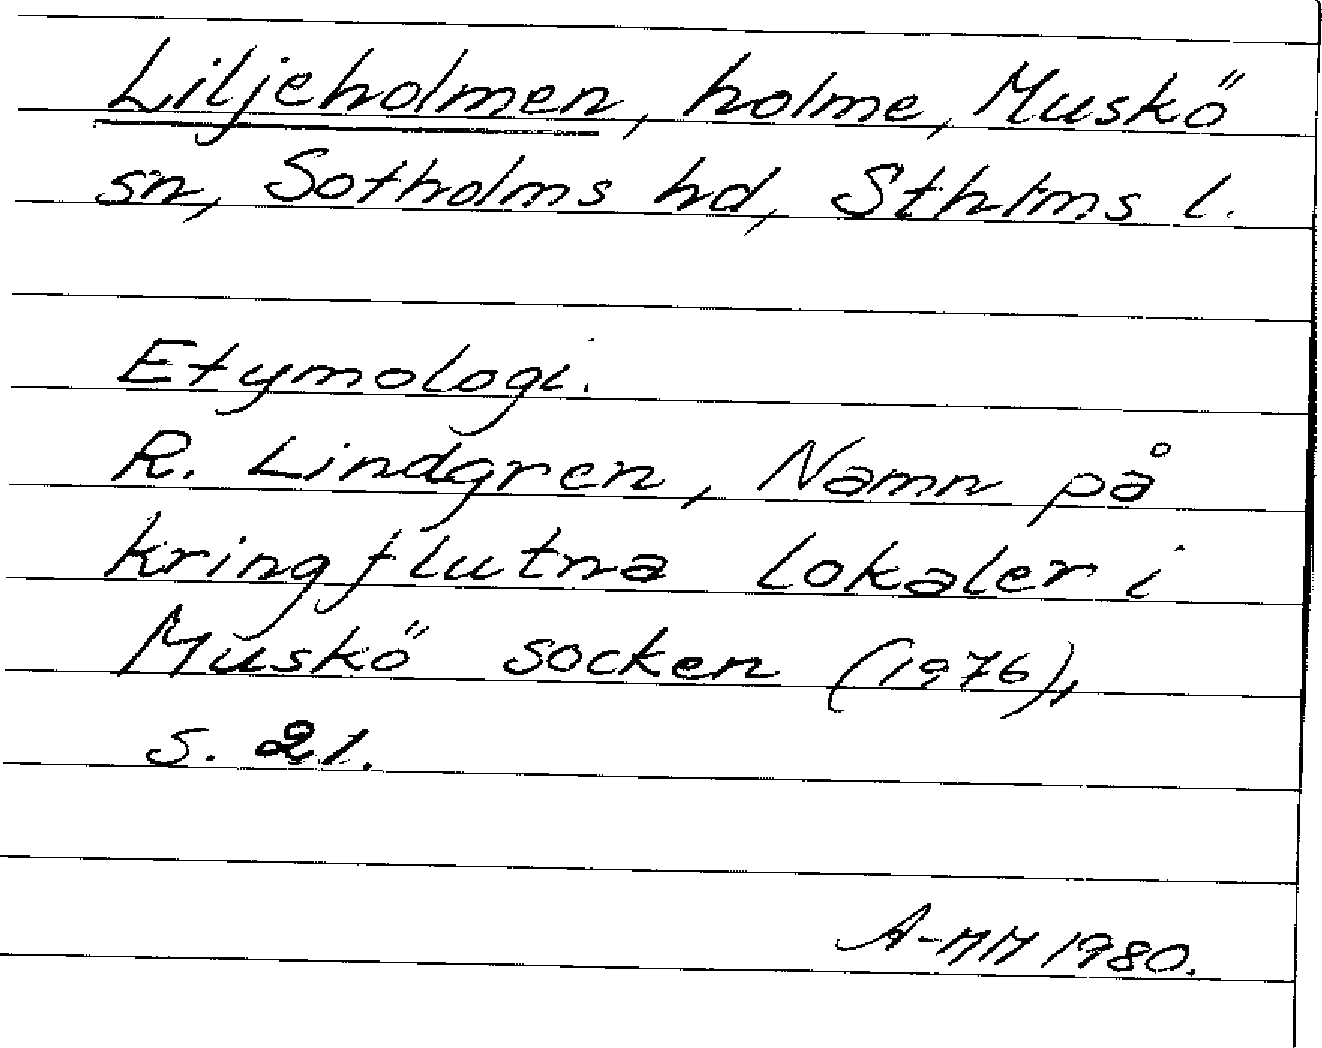 Liljeholmen, holme, Muskö
sn, Sotholms hd, Sthlms l.
Etymologi.
R. Lindgren, Namn på
kringflutna lokaler i
Muskö socken (1976),
s. 21.
A-MM 1980.